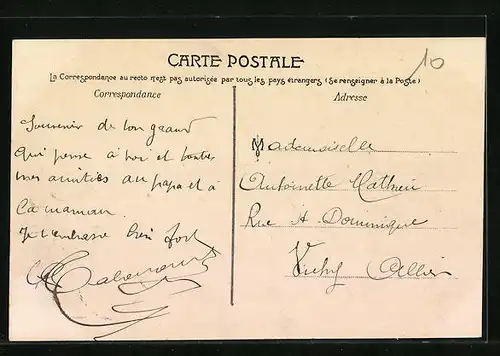 10
CARTE POSTALE
La Correspondance au recto n'est pas autorisée par tous les pays étrangers (Se renseigner à la Poste)
Correspondance
Adresse
Souvenir de ton grand
qui pense à toi et toutes
mes amitiés au papa et à
la maman.
Je t'embrasse bien fort
Mademoiselle
Antoinette Mathieu
Rue St Dominique
Vichy Allier